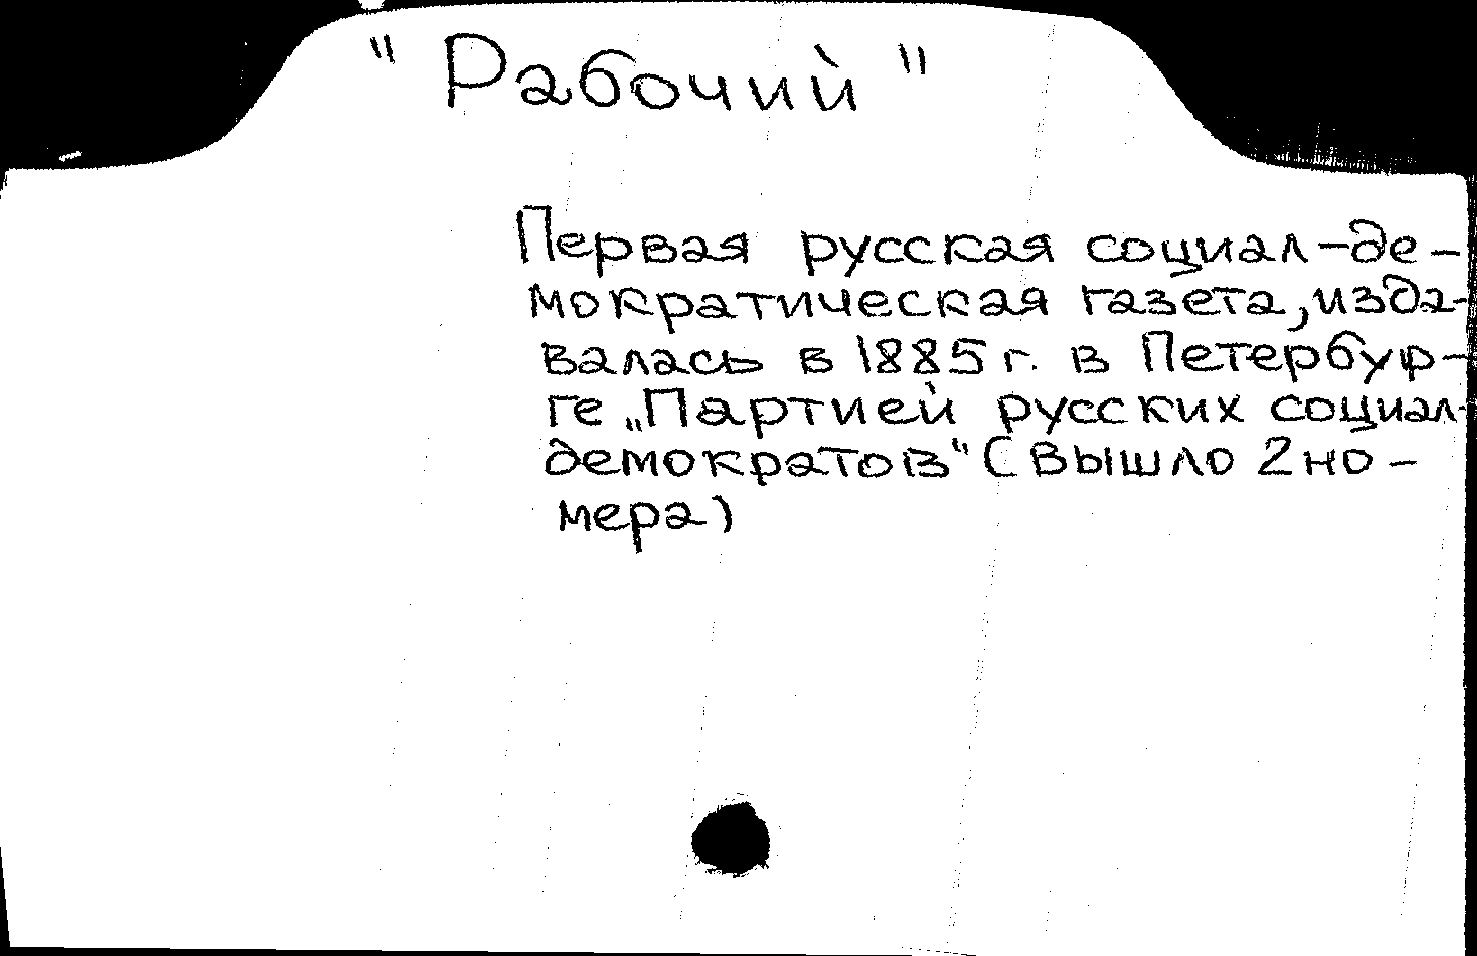 "Рабочий"
Первая русская социал-де-
мократическая газета, изда-
валась в 1885 г. в Петербур-
ге „Партией русских социал-
демократов" (Вышло 2 но-
мера)